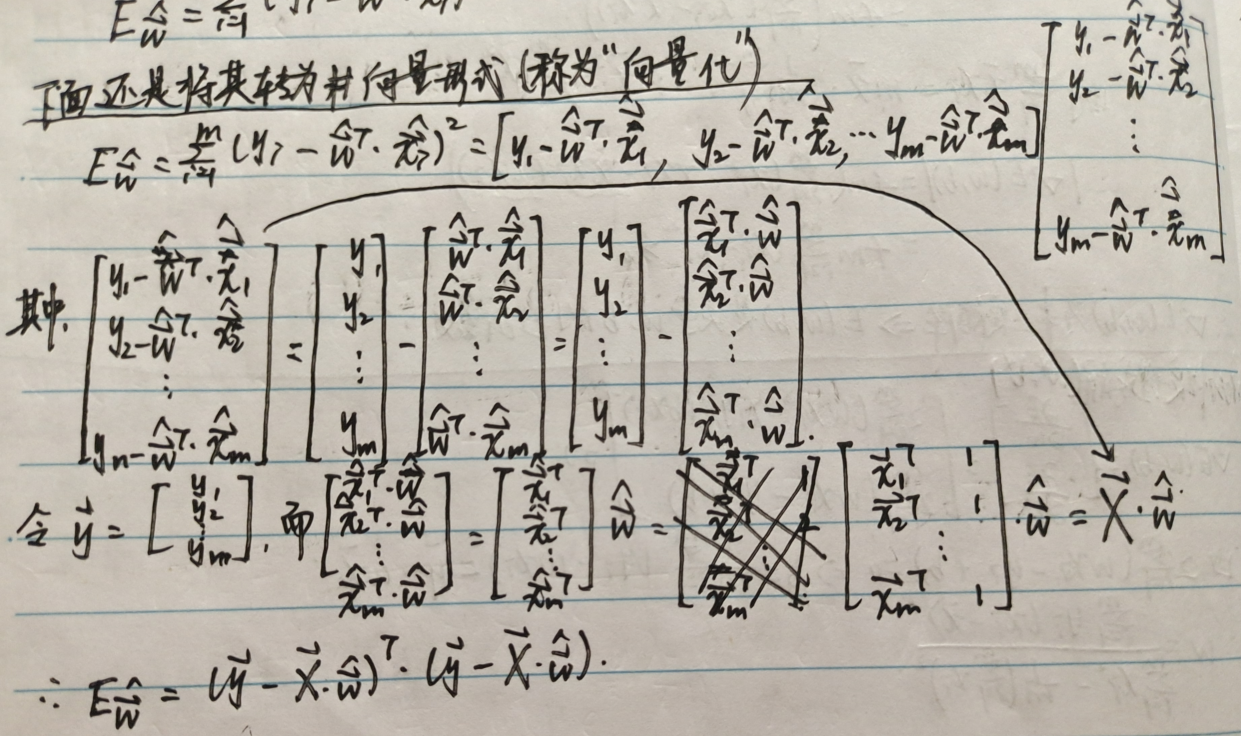 E_{\hat{\vec{w}}} = \sum_{i=1} (y_i - \hat{\vec{w}}^T \cdot \hat{\vec{x}}_i)
下面还是将其转为向量形式（称为“向量化”）
E_{\hat{\vec{w}}} = \sum_{i=1}^{m} (y_i - \hat{\vec{w}}^T \cdot \hat{\vec{x}}_i)^2 = [y_1 - \hat{\vec{w}}^T \cdot \hat{\vec{x}}_1, y_2 - \hat{\vec{w}}^T \cdot \hat{\vec{x}}_2, \cdots y_m - \hat{\vec{w}}^T \cdot \hat{\vec{x}}_m] \begin{bmatrix} y_1 - \hat{\vec{w}}^T \cdot \hat{\vec{x}}_1 \\ y_2 - \hat{\vec{w}}^T \cdot \hat{\vec{x}}_2 \\ \vdots \\ y_m - \hat{\vec{w}}^T \cdot \hat{\vec{x}}_m \end{bmatrix}
其中, \begin{bmatrix} y_1 - \hat{\vec{w}}^T \cdot \hat{\vec{x}}_1 \\ y_2 - \hat{\vec{w}}^T \cdot \hat{\vec{x}}_2 \\ \vdots \\ y_m - \hat{\vec{w}}^T \cdot \hat{\vec{x}}_m \end{bmatrix} = \begin{bmatrix} y_1 \\ y_2 \\ \vdots \\ y_m \end{bmatrix} - \begin{bmatrix} \hat{\vec{w}}^T \cdot \hat{\vec{x}}_1 \\ \hat{\vec{w}}^T \cdot \hat{\vec{x}}_2 \\ \vdots \\ \hat{\vec{w}}^T \cdot \hat{\vec{x}}_m \end{bmatrix} = \begin{bmatrix} y_1 \\ y_2 \\ \vdots \\ y_m \end{bmatrix} - \begin{bmatrix} \hat{\vec{x}}_1^T \cdot \hat{\vec{w}} \\ \hat{\vec{x}}_2^T \cdot \hat{\vec{w}} \\ \vdots \\ \hat{\vec{x}}_m^T \cdot \hat{\vec{w}} \end{bmatrix}.
令 \vec{y} = \begin{bmatrix} y_1 \\ y_2 \\ \vdots \\ y_m \end{bmatrix}, 而 \begin{bmatrix} \hat{\vec{x}}_1^T \cdot \hat{\vec{w}} \\ \hat{\vec{x}}_2^T \cdot \hat{\vec{w}} \\ \vdots \\ \hat{\vec{x}}_m^T \cdot \hat{\vec{w}} \end{bmatrix} = \begin{bmatrix} \hat{\vec{x}}_1^T \\ \hat{\vec{x}}_2^T \\ \vdots \\ \hat{\vec{x}}_m^T \end{bmatrix} \hat{\vec{w}} = \begin{bmatrix} \vec{x}_1^T & 1 \\ \vec{x}_2^T & 1 \\ \vdots \\ \vec{x}_m^T & 1 \end{bmatrix} \cdot \hat{\vec{w}} = \vec{X} \cdot \hat{\vec{w}}
∴ E_{\hat{\vec{w}}} = (\vec{y} - \vec{X} \cdot \hat{\vec{w}})^T \cdot (\vec{y} - \vec{X} \cdot \hat{\vec{w}}).